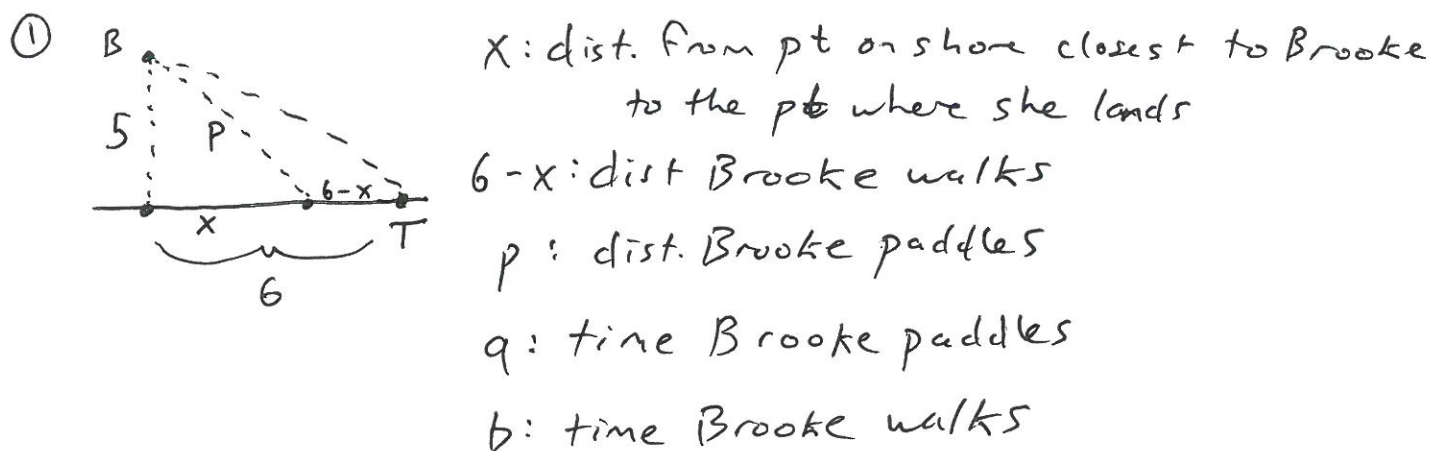 ① B x: dist. from pt on shore closest to Brooke
to the pt where she lands
5 p
6-x: dist Brooke walks
6-x
x T
p: dist. Brooke paddles
6
q: time Brooke paddles
b: time Brooke walks